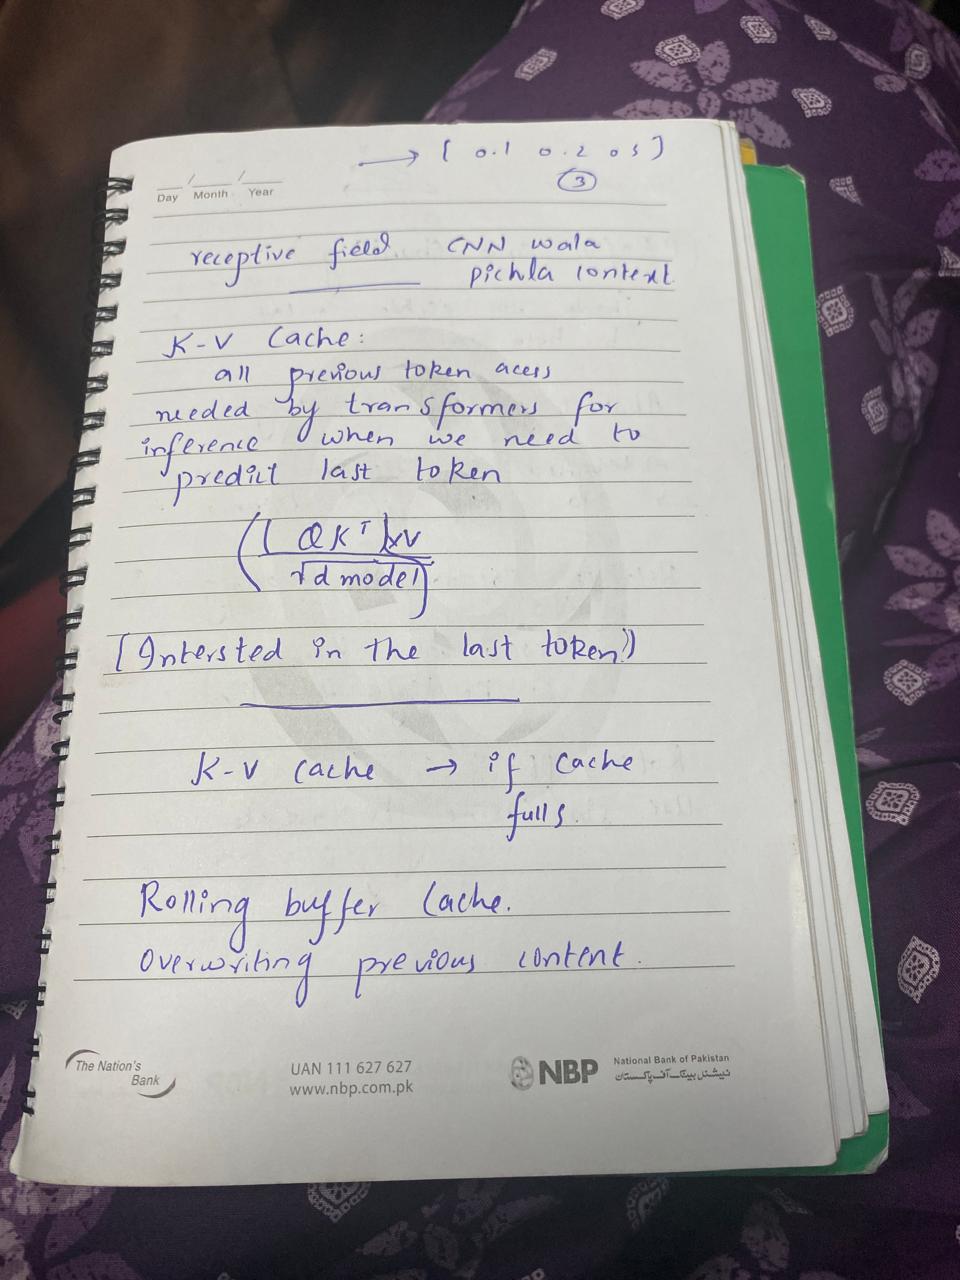 → [ 0.1 0.2 0 5 ]
3
Day / Month / Year
receptive field CNN wala
pichla context.
K-V Cache:
all previous token acess
needed by transformers for
inference when we need to
predict last token
(( QKᵀ ) x V
√d model )
[ Intersted in the last token! )
K-V Cache → if Cache
fulls.
Rolling buffer Cache.
Overwriting previous content.
The Nation's
Bank
UAN 111 627 627
www.nbp.com.pk
NBP
National Bank of Pakistan
نیشنل بینک آف پاکستان